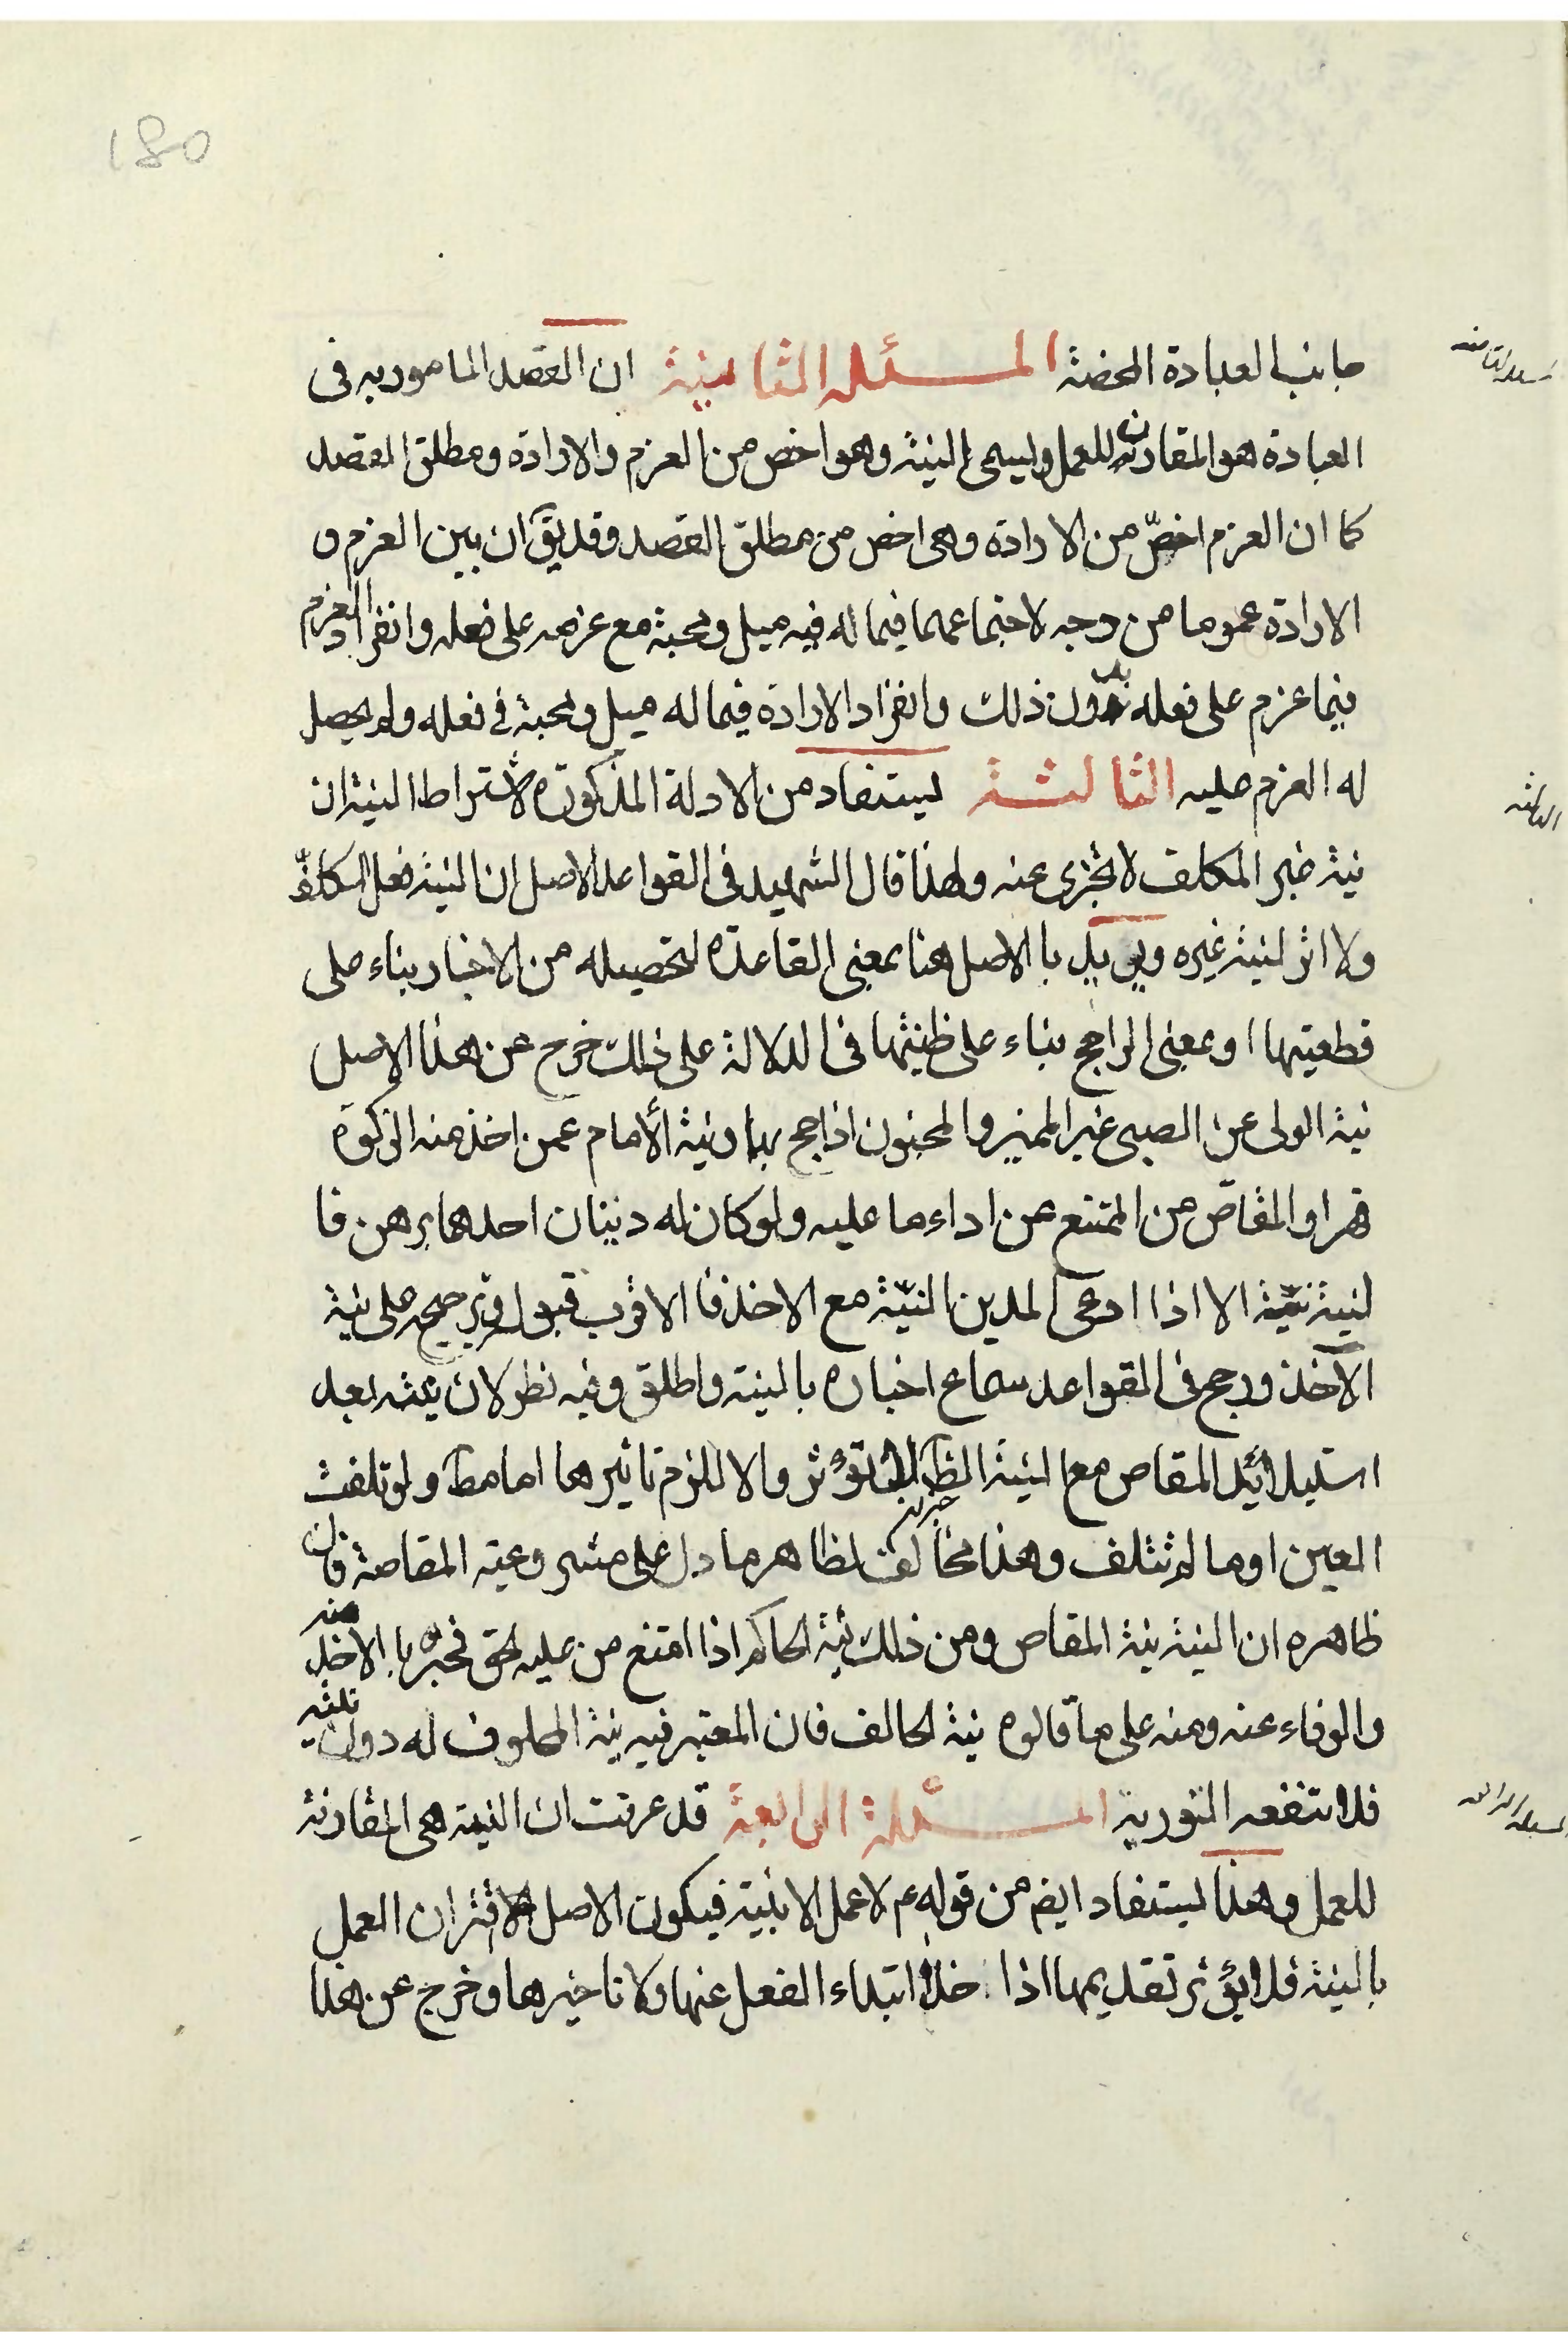 180
جانب العبادة المحضة المسئلة الثانية ان القصد المامور به فى
المسئلة الثانية
العبادة هو المقارن للعمل ويسمى بالنية وهو اخص من العزم والارادة ومطلق القصد
كما ان العزم اخصّ من الارادة وهى اخص من مطلق القصد وقد يقٓ ان بين العزم و
الارادة عموما من وجه لاجتماعهما فيما له فيه ميل ومحبة مع عزمه على فعله وانفراد العزم
فيما عزم على فعله بدون ذلك وانفراد الارادة فيما له ميل ومحبة فى فعله ولم يحصل
له العزم عليه الثالثة يستفاد من الادلة المذكورة لاشتراط النية ان
الثالثة
نية غير المكلف لا تجزى عنه ولهذا قال الشهيد فى القواعد الاصل ان النية فعل المكلف
ولا اثر لنية غيره ويريد بالاصل هنا بمعنى القاعدة لتحصيله من الاخبار بناء على
قطعيتها او بمعنى الراجح بناء على ظنيتها فى الدلالة على ذلك خرج عن هذا الاصل
نية الولى عن الصبى غير المميز والمجنون اذا حج بهما ونية الأمام عمن اخذ منه الزكوة
قهرا والمقاصّ من الممتنع من اداء ما عليه ولو كان له دينان احدهما برهن فا
لنية نيّته الا اذا ادعى المدين النيّة مع الاخذ فالاقرب قبول وترجيحه على نية
الآخذ ورجح فى القواعد سماع اخباره بالنية واطلق وفيه نظر لان نيته بعد
استيلائيد المقاص مع النية الظٓ لا تؤثر والا للزم تاثيرها اما مطٓ ولو تلفت
العين او ما لم تتلف وهذا مخالف لظاهر ما دل على مشروعية المقاصة فان
ظاهره ان النية نية المقاص ومن ذلك نية الحاكم اذا امتنع من عليه الحق فجبره بالاخذ منه
والوفاء عنه ومنه على ما قالوه نية الحالف فان المعتبر فيه نية المحلوف له دون نيته
فلا تنفعه التورية المسئلة الرابعة قد عرفت ان النية هى المقارنة
المسئلة الرابعة
للعمل وهذا يستفاد ايض من قوله ع لا عمل الا بنية فيكون الاصل اقتران العمل
بالنية فلا يؤثر تقديمها اذا خلا ابتداء الفعل عنها ولا تاخيرها وخرج عن هذا